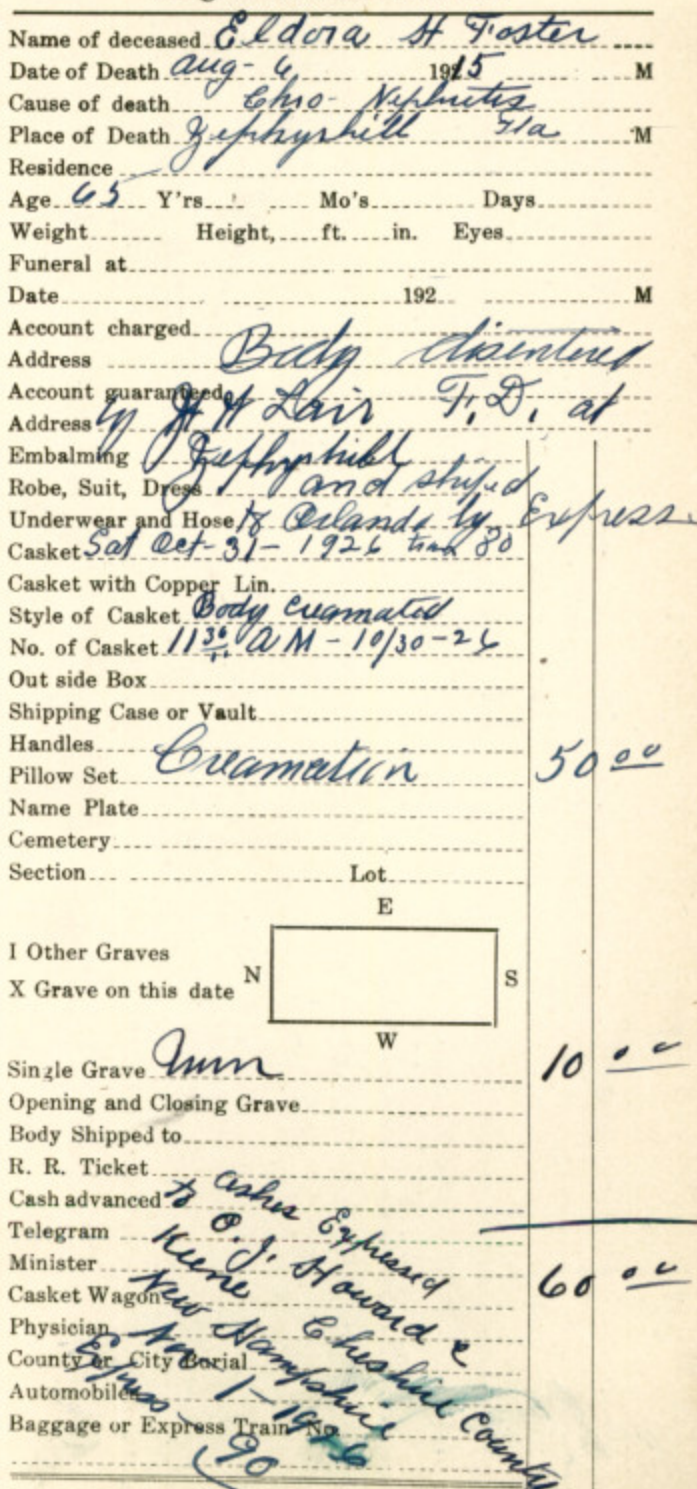 Name of deceased Eldora H Foster
Date of Death Aug- 6 1915 M
Cause of death Chro- Nephritis
Place of Death Zephyrhill Fla M
Residence
Age 65 Y'rs Mo's Days
Weight Height, ft. in. Eyes
Funeral at
Date 192 M
Account charged
Address Body disentered
Account guaranteed
Address by H Lair F.D. at
Embalming Zephyrhill
Robe, Suit, Dress and shiped
Underwear and Hose to Orlando by Express
Casket Sat Oct-31-1926 80
Casket with Copper Lin.
Style of Casket Body Creamated
No. of Casket 11 30 AM - 10/30-26
Out side Box
Shipping Case or Vault
Handles
Pillow Set Creamation 50 00
Name Plate
Cemetery
Section Lot
E
I Other Graves
N S
X Grave on this date
W
Single Grave Urn 10 00
Opening and Closing Grave
Body Shipped to
R. R. Ticket
Cash advanced
Telegram
Minister 60 00
Casket Wagon
Physician
County or City Burial
Automobiles
Baggage or Express Train No.
Ashes Expressed
to O. J. Howard
Keene Cheshire County
New Hampshire
1-1926
Express 90